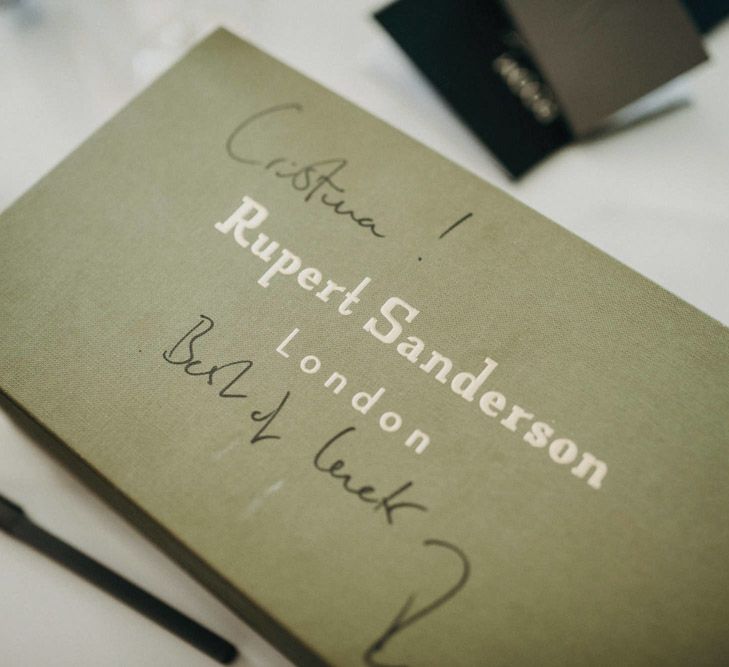 Cristina !
Rupert Sanderson
London
Best of luck
R